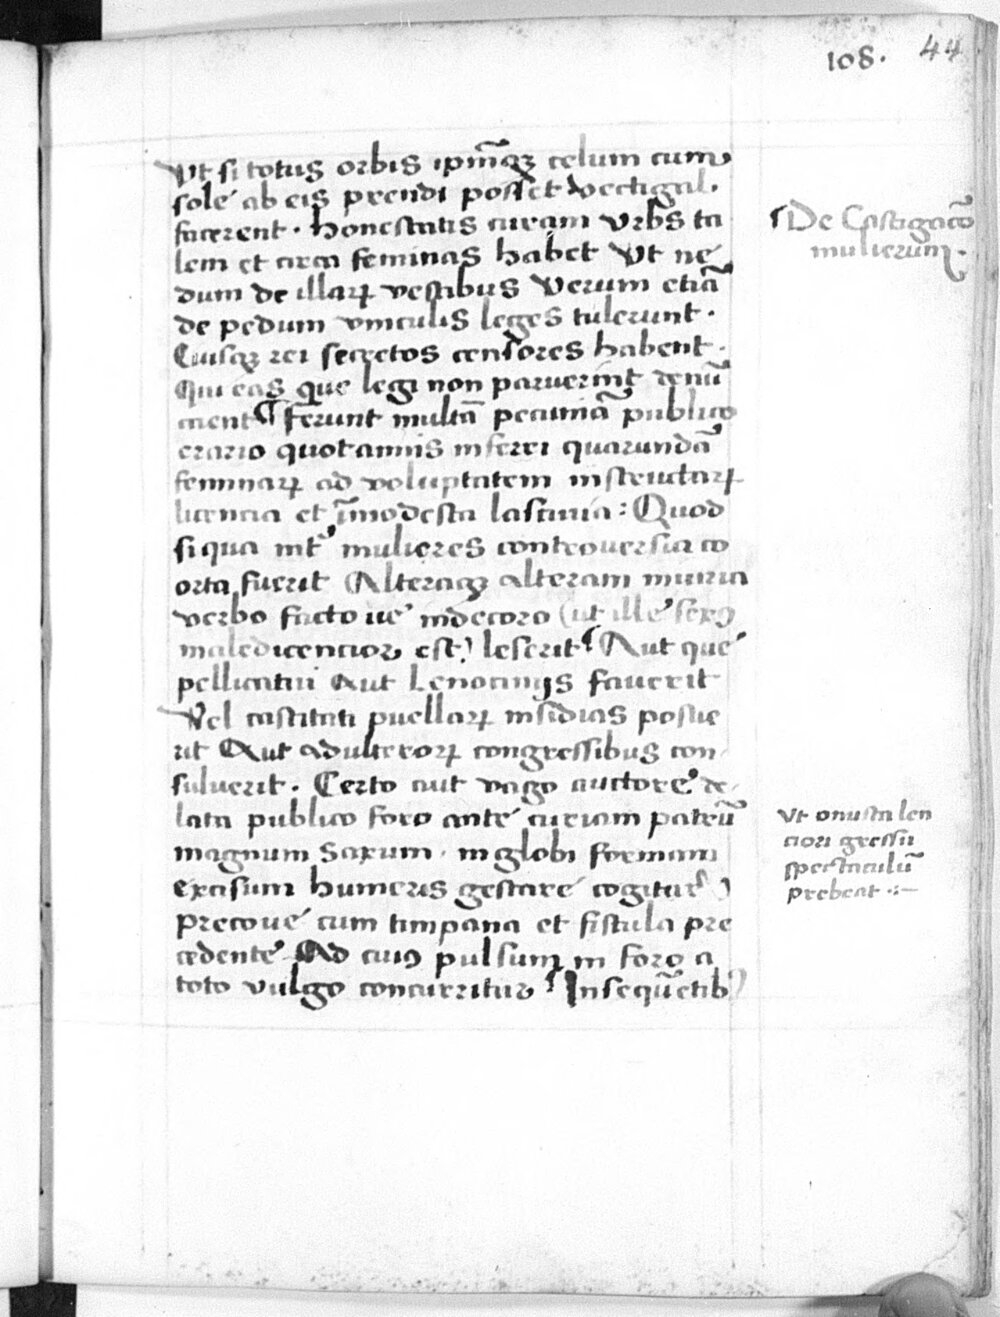 108. 44
Ut si totus orbis ipm̃qꝫ celum cum
sole ab eis prendi posset vectigal.
facerent. honestatis curam Urbs ta
lem et circa feminas habet Ut ne
dum de illaꝝ vestibus Verum etiã
de pedum vinculis leges tulerunt.
Cuiusqꝫ rei secretos censores habent.
Qui eas que legi non paruerint denũ
cient ¶ ferunt multã pecuniã publico
erario quotannis inferri quarundã
feminaꝝ ad voluptatem instructaꝝ
licencia et ĩmodesta lasciuia: Quod
si qua int̾ mulieres controuersia co
orta fuerit Alteraqꝫ alteram iniuria
verbo facto ue indecoro (ut ille sexꝯ
maledicencior est) leserit ¶ Aut que
pellicatui Aut Lenocinijs fauerit
Vel castitati puellaꝝ insidias posue
rit Aut adulteroꝝ congressibus con
suluerit. Certo aut vago auctore de
lata publico foro ante curiam patrũ
magnum Saxum in globi formam
excisum humeris gestare cogitur
precone cum timpana et fistula pre
cedente Ad cuiꝯ pulsum in foro a
toto vulgo concurritur ¶ Insequẽtib
¶ De Castigacõe
mulierum.
Ut onusta len
ciori gressu
spectaculũ
prebeat